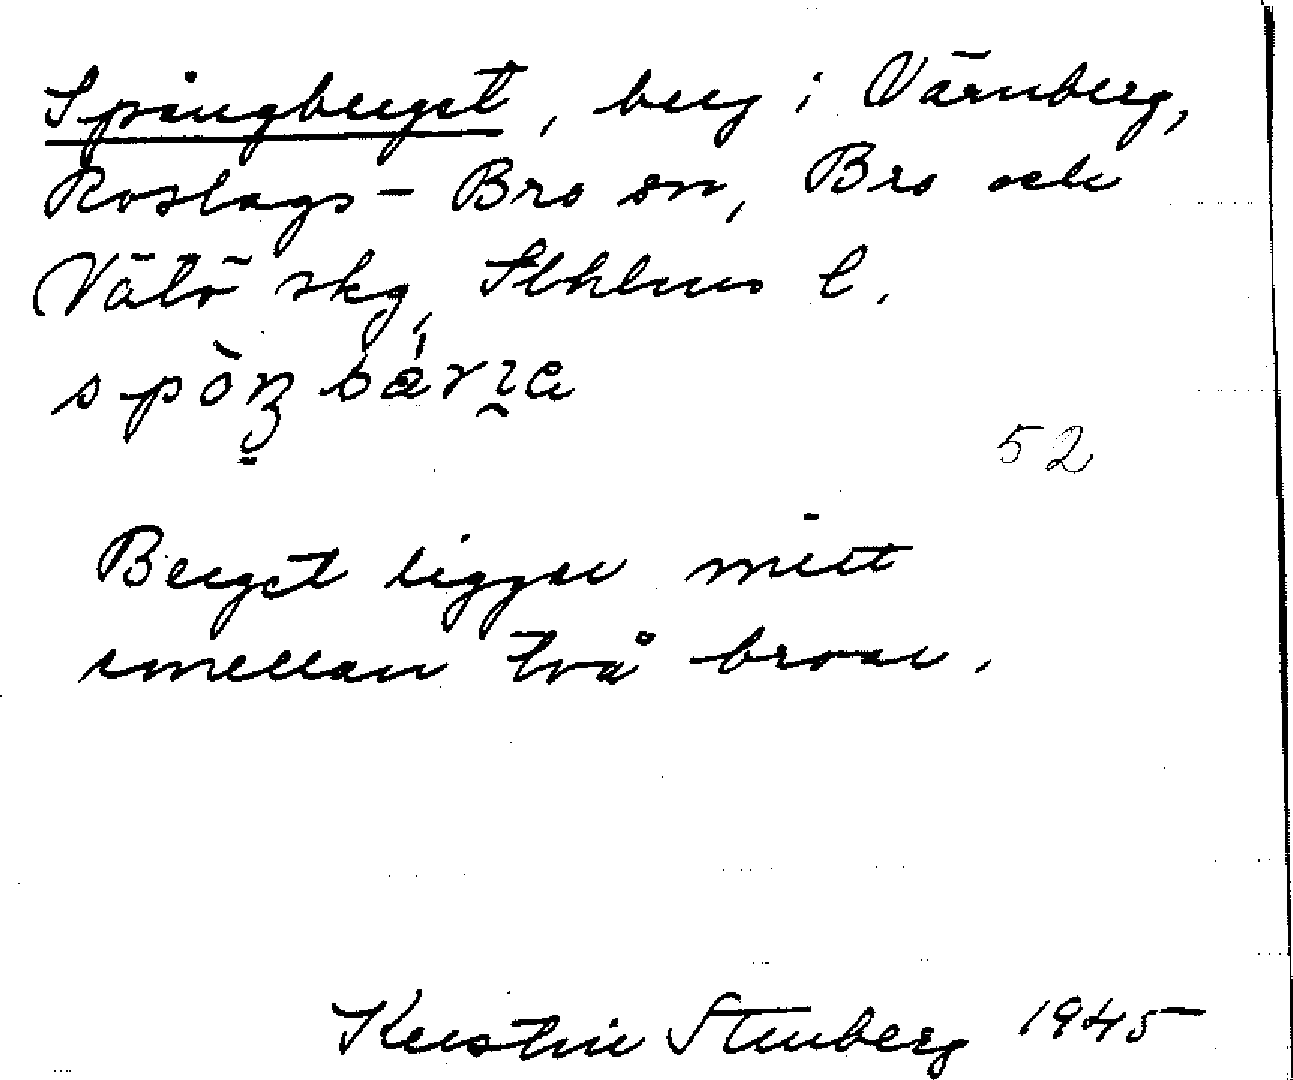 Spångberget, berg i Värnberg,
Roslags-Bro sn, Bro och
Vätö skg, Sthlms l.
52
Berget ligger mitt
emellan två broar.
Kerstin Stenberg 1945